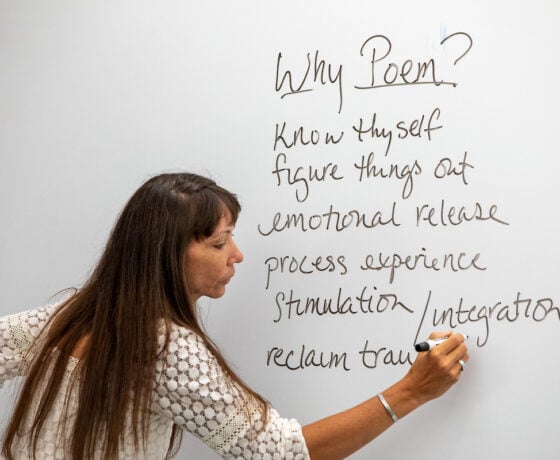 Why Poem?
Know thyself
figure things out
emotional release
process experience
Stimulation/integration
reclaim trau